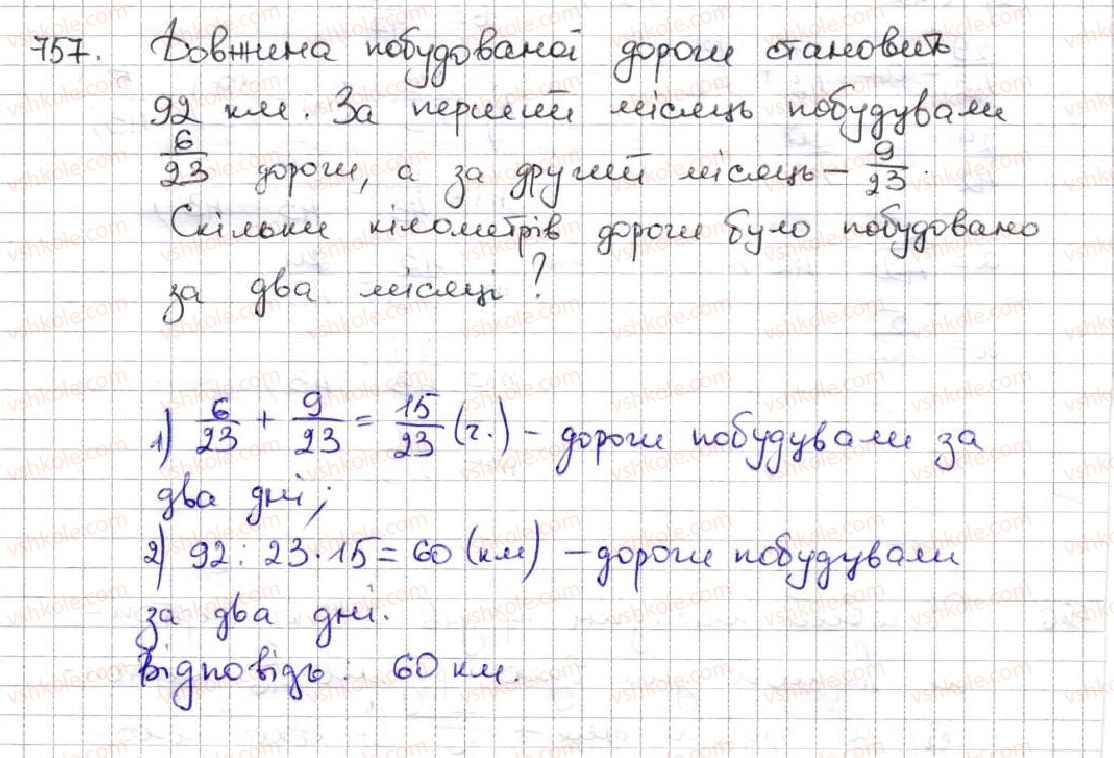 757. Довжина побудованої дороги становить
92 км. За перший місяць побудували
6/23 дороги, а за другий місяць – 9/23.
Скільки кілометрів дороги було побудовано
за два місяці?
1) 6/23 + 9/23 = 15/23 (ч.) – дороги побудували за
два дні;
2) 92 : 23 · 15 = 60 (км) – дороги побудували
за два дні.
Відповідь: 60 км.